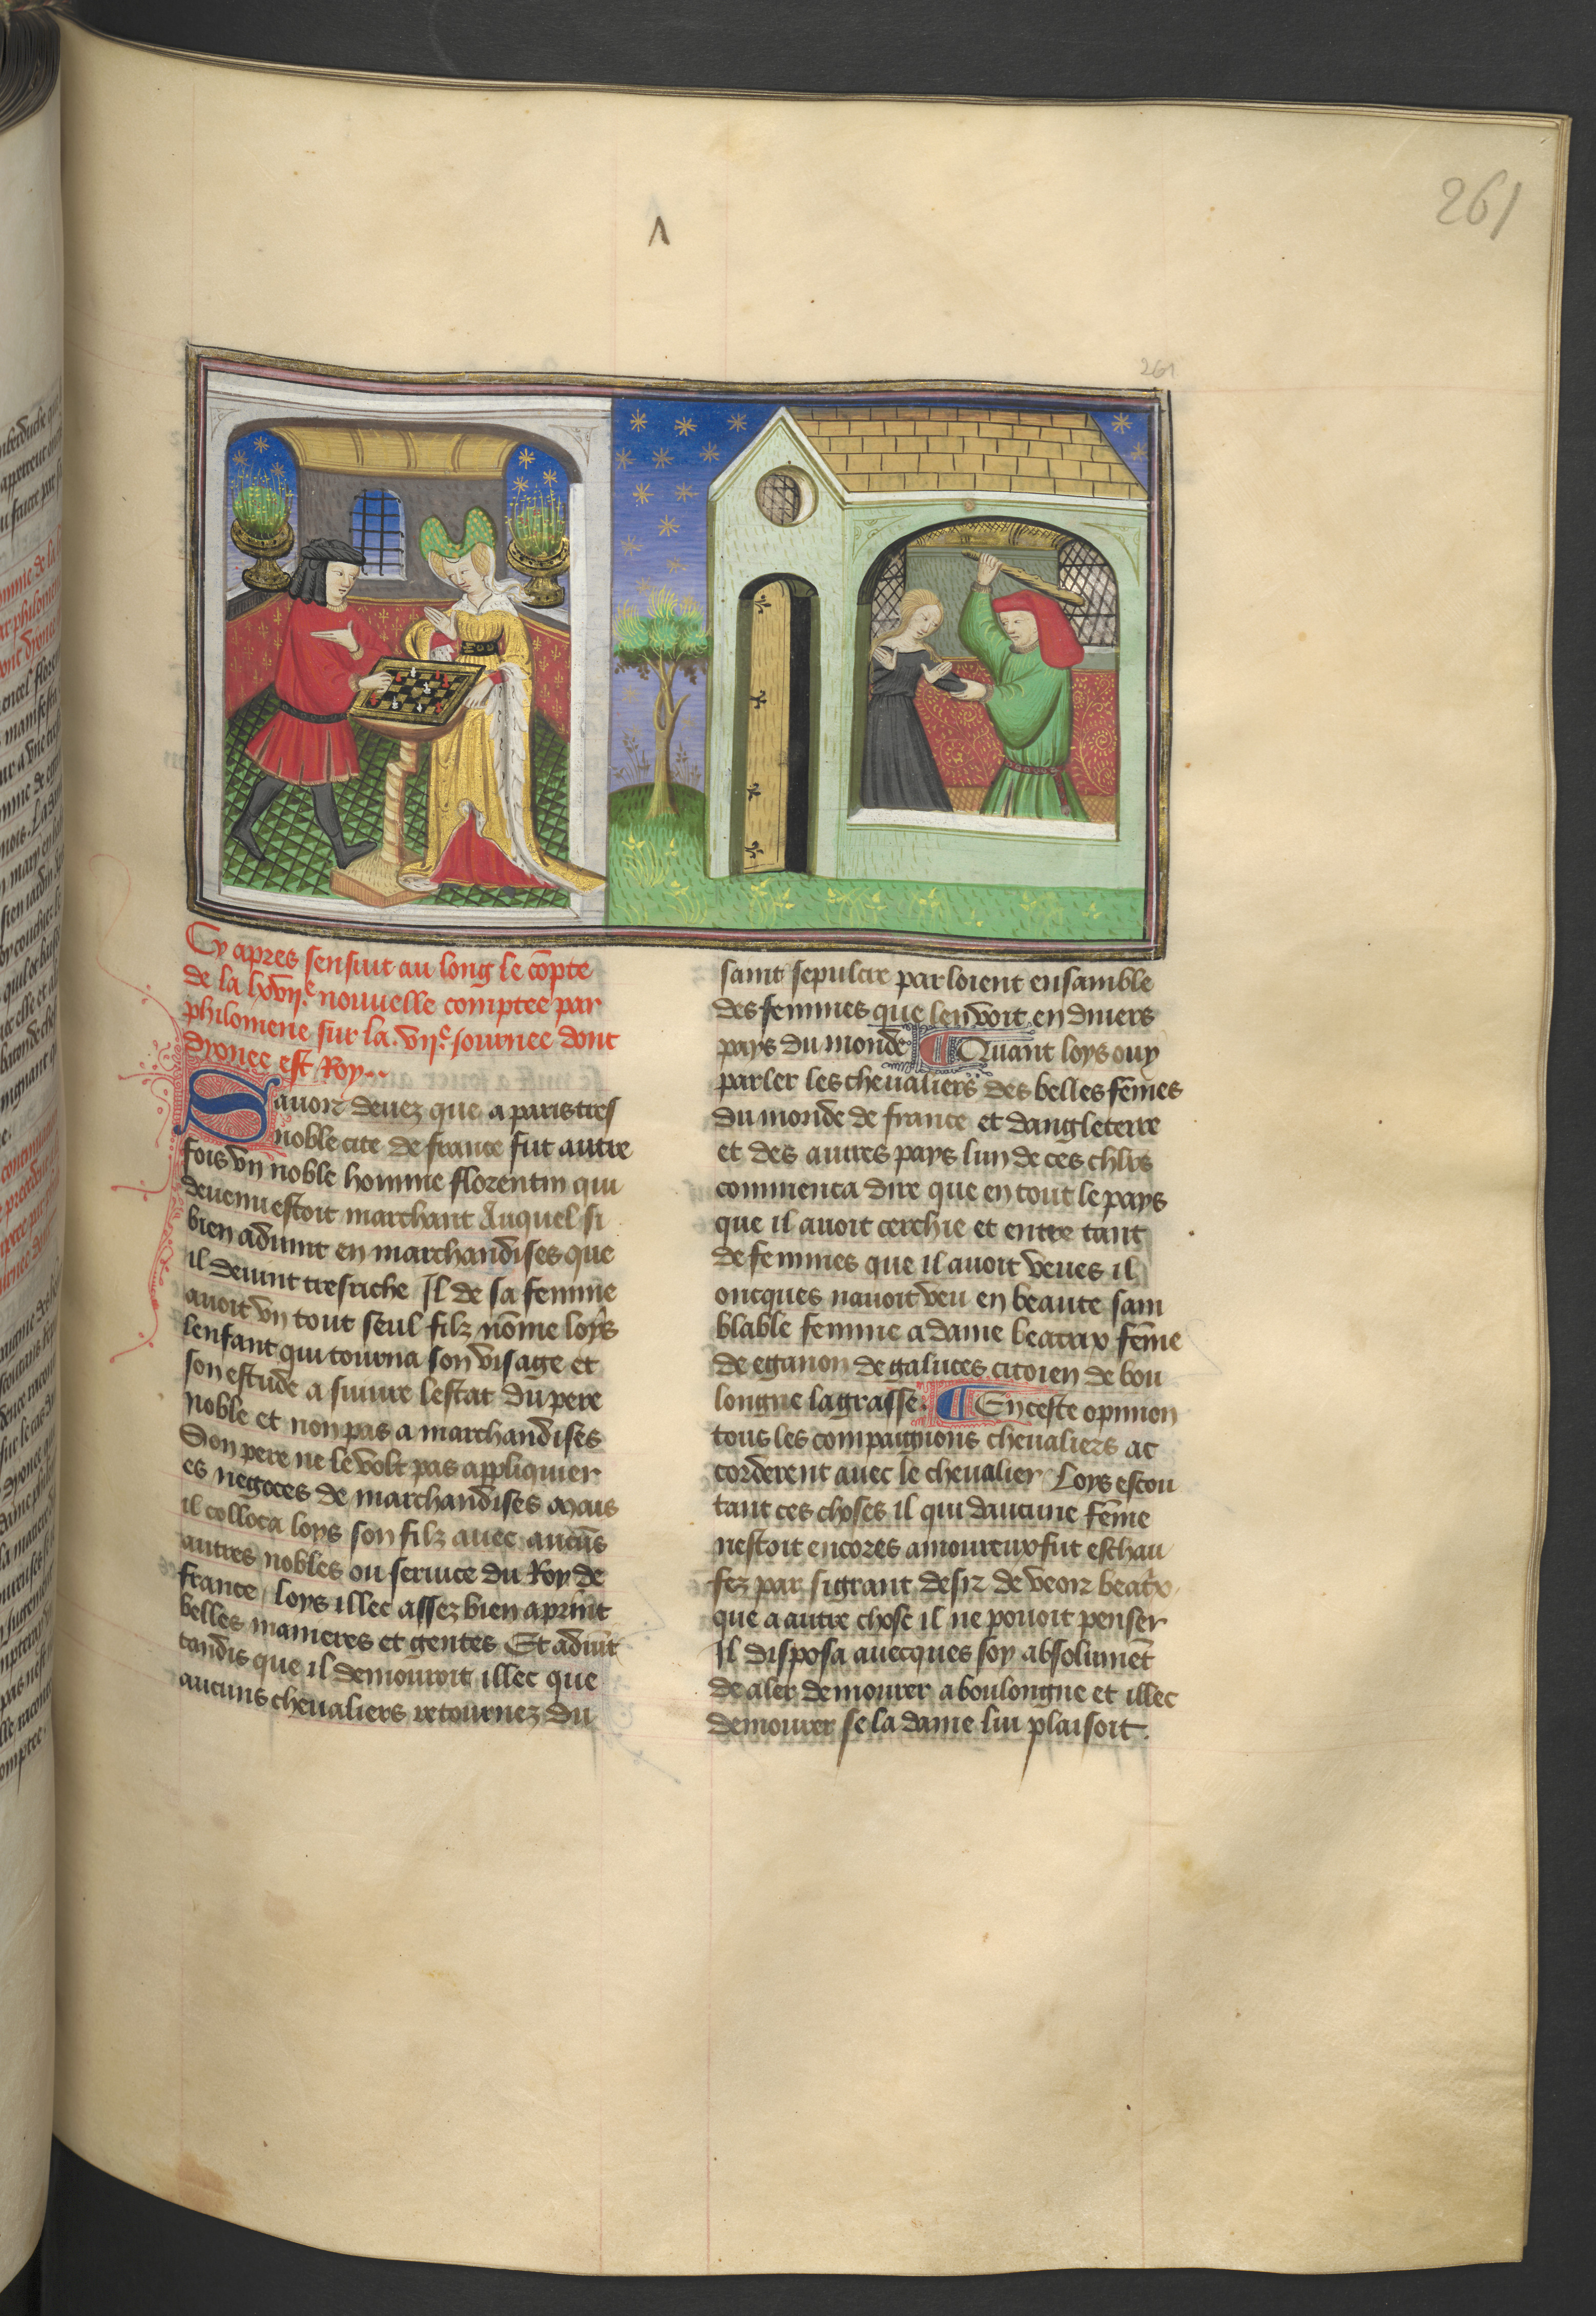 261
261
Cy apres sensuit au long le cōpte
de la lxvijᵉ nouuelle comptee par
philomene sur la .vijᵉ. iournee dont
dyonee est Roy..
Sauoir deuez que a paris tres
noble cite de france fut autre
fois vn noble homme florentin qui
deuenu estoit marchant Auquel si
bien aduint en marchandises que
il deuint tresriche Il de sa femme
auoit vn tout seul filz nōme loys
lenfant qui tourna son visage et
son estude a suiure lestat du pere
noble et non pas a marchandises
Son pere ne le volt pas appliquier
es negoces de marchandises Mais
il colloca loys son filz auec aucūs
autres nobles ou seruice du Roy de
france / loys illec assez bien aprint
belles manieres et gentes Et aduīt
tandis que il demouroit illec que
aucuns cheualiers retournez du
saint sepulcre parloient ensamble
des femmes que len voit en diuers
pays du monde ¶ Quant loys ouy
parler les cheualiers des belles fēmes
du monde de france et dangleterre
et des autres pays lun de ces chlrs
commenca dire que en tout le pays
que il auoit cerchie et entre tant
de femmes que il auoit veues il
oncques nauoit veu en beaute sam
blable femme a dame beatrix fēme
de eganon de galuces citoien de bou
longne la grasse. ¶ En ceste opinion
tous les compaignons cheualiers ac
corderent auec le cheualier Loys escou
tant ces choses il qui daucune fēme
nestoit encores amoureux fut eschau
fez par si grant desir de veoir beatrix
que a autre chose il ne pouoit penser
Il disposa auecques soy absolumēt
de aler demourer a boulongne et illec
demourer se la dame lui plaisoit.